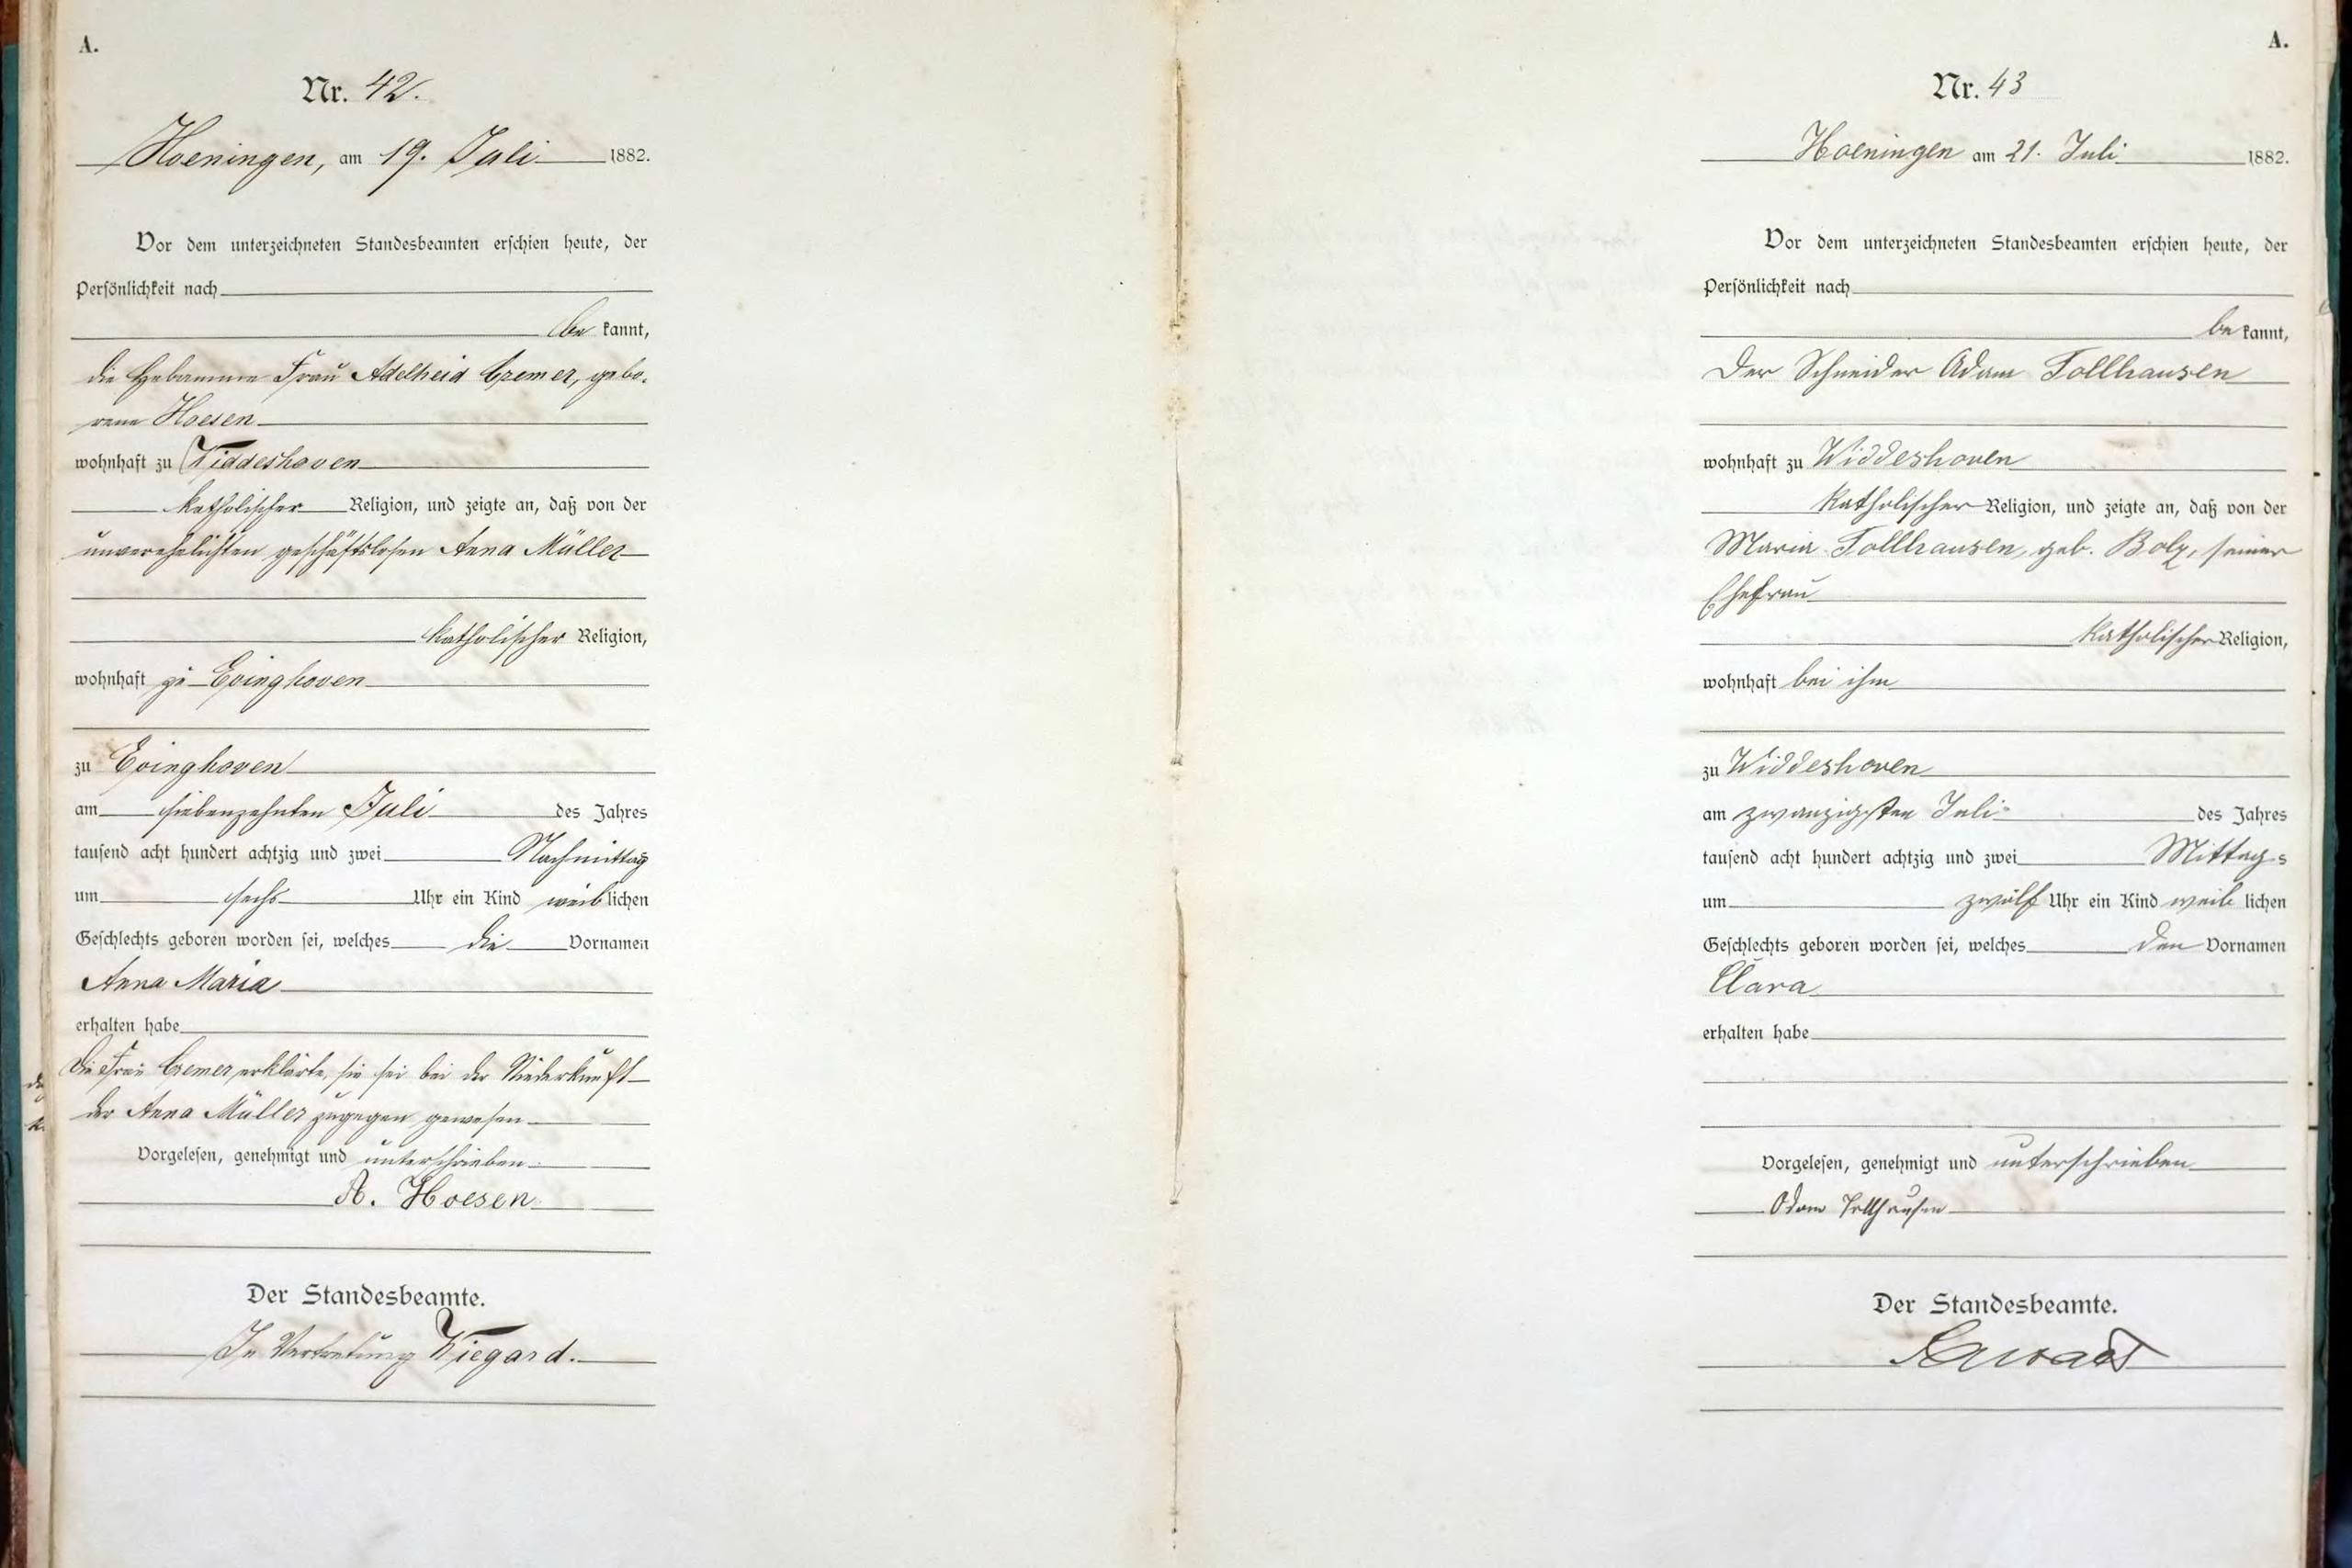 A.
Nr. 42.
Hoeningen, am 19. Juli 1882.
Vor dem unterzeichneten Standesbeamten erschien heute, der
Persönlichkeit nach
be kannt,
die Hebamme Frau Adelheid Cremer, gebo-
rene Hoesen
wohnhaft zu Widdeshoven
katholischer Religion, und zeigte an, daß von der
unverehelichten geschäftslosen Anna Müller
katholischer Religion,
wohnhaft zu Evinghoven
zu Evinghoven
am siebenzehnten Juli des Jahres
tausend acht hundert achtzig und zwei Nachmittag
um sechs Uhr ein Kind weiblichen
Geschlechts geboren worden sei, welches die Vornamen
Anna Maria
erhalten habe
Die Frau Cremer erklärte, sie sei bei der Niederkunft
der Anna Müller zugegen gewesen
Vorgelesen, genehmigt und unterschrieben
A. Hoesen
Der Standesbeamte.
In Vertretung Wiegard.
A.
Nr. 43
Hoeningen am 21. Juli 1882.
Vor dem unterzeichneten Standesbeamten erschien heute, der
Persönlichkeit nach
be kannt,
Der Schneider Adam Tollhausen
wohnhaft zu Widdeshoven
katholischer Religion, und zeigte an, daß von der
Maria Tollhausen, geb. Bolz, seiner
Ehefrau
katholischer Religion,
wohnhaft bei ihm
zu Widdeshoven
am zwanzigsten Juli des Jahres
tausend acht hundert achtzig und zwei Mittags
um zwölf Uhr ein Kind weib lichen
Geschlechts geboren worden sei, welches den Vornamen
Clara
erhalten habe
Vorgelesen, genehmigt und unterschrieben
Adam Tollhausen
Der Standesbeamte.